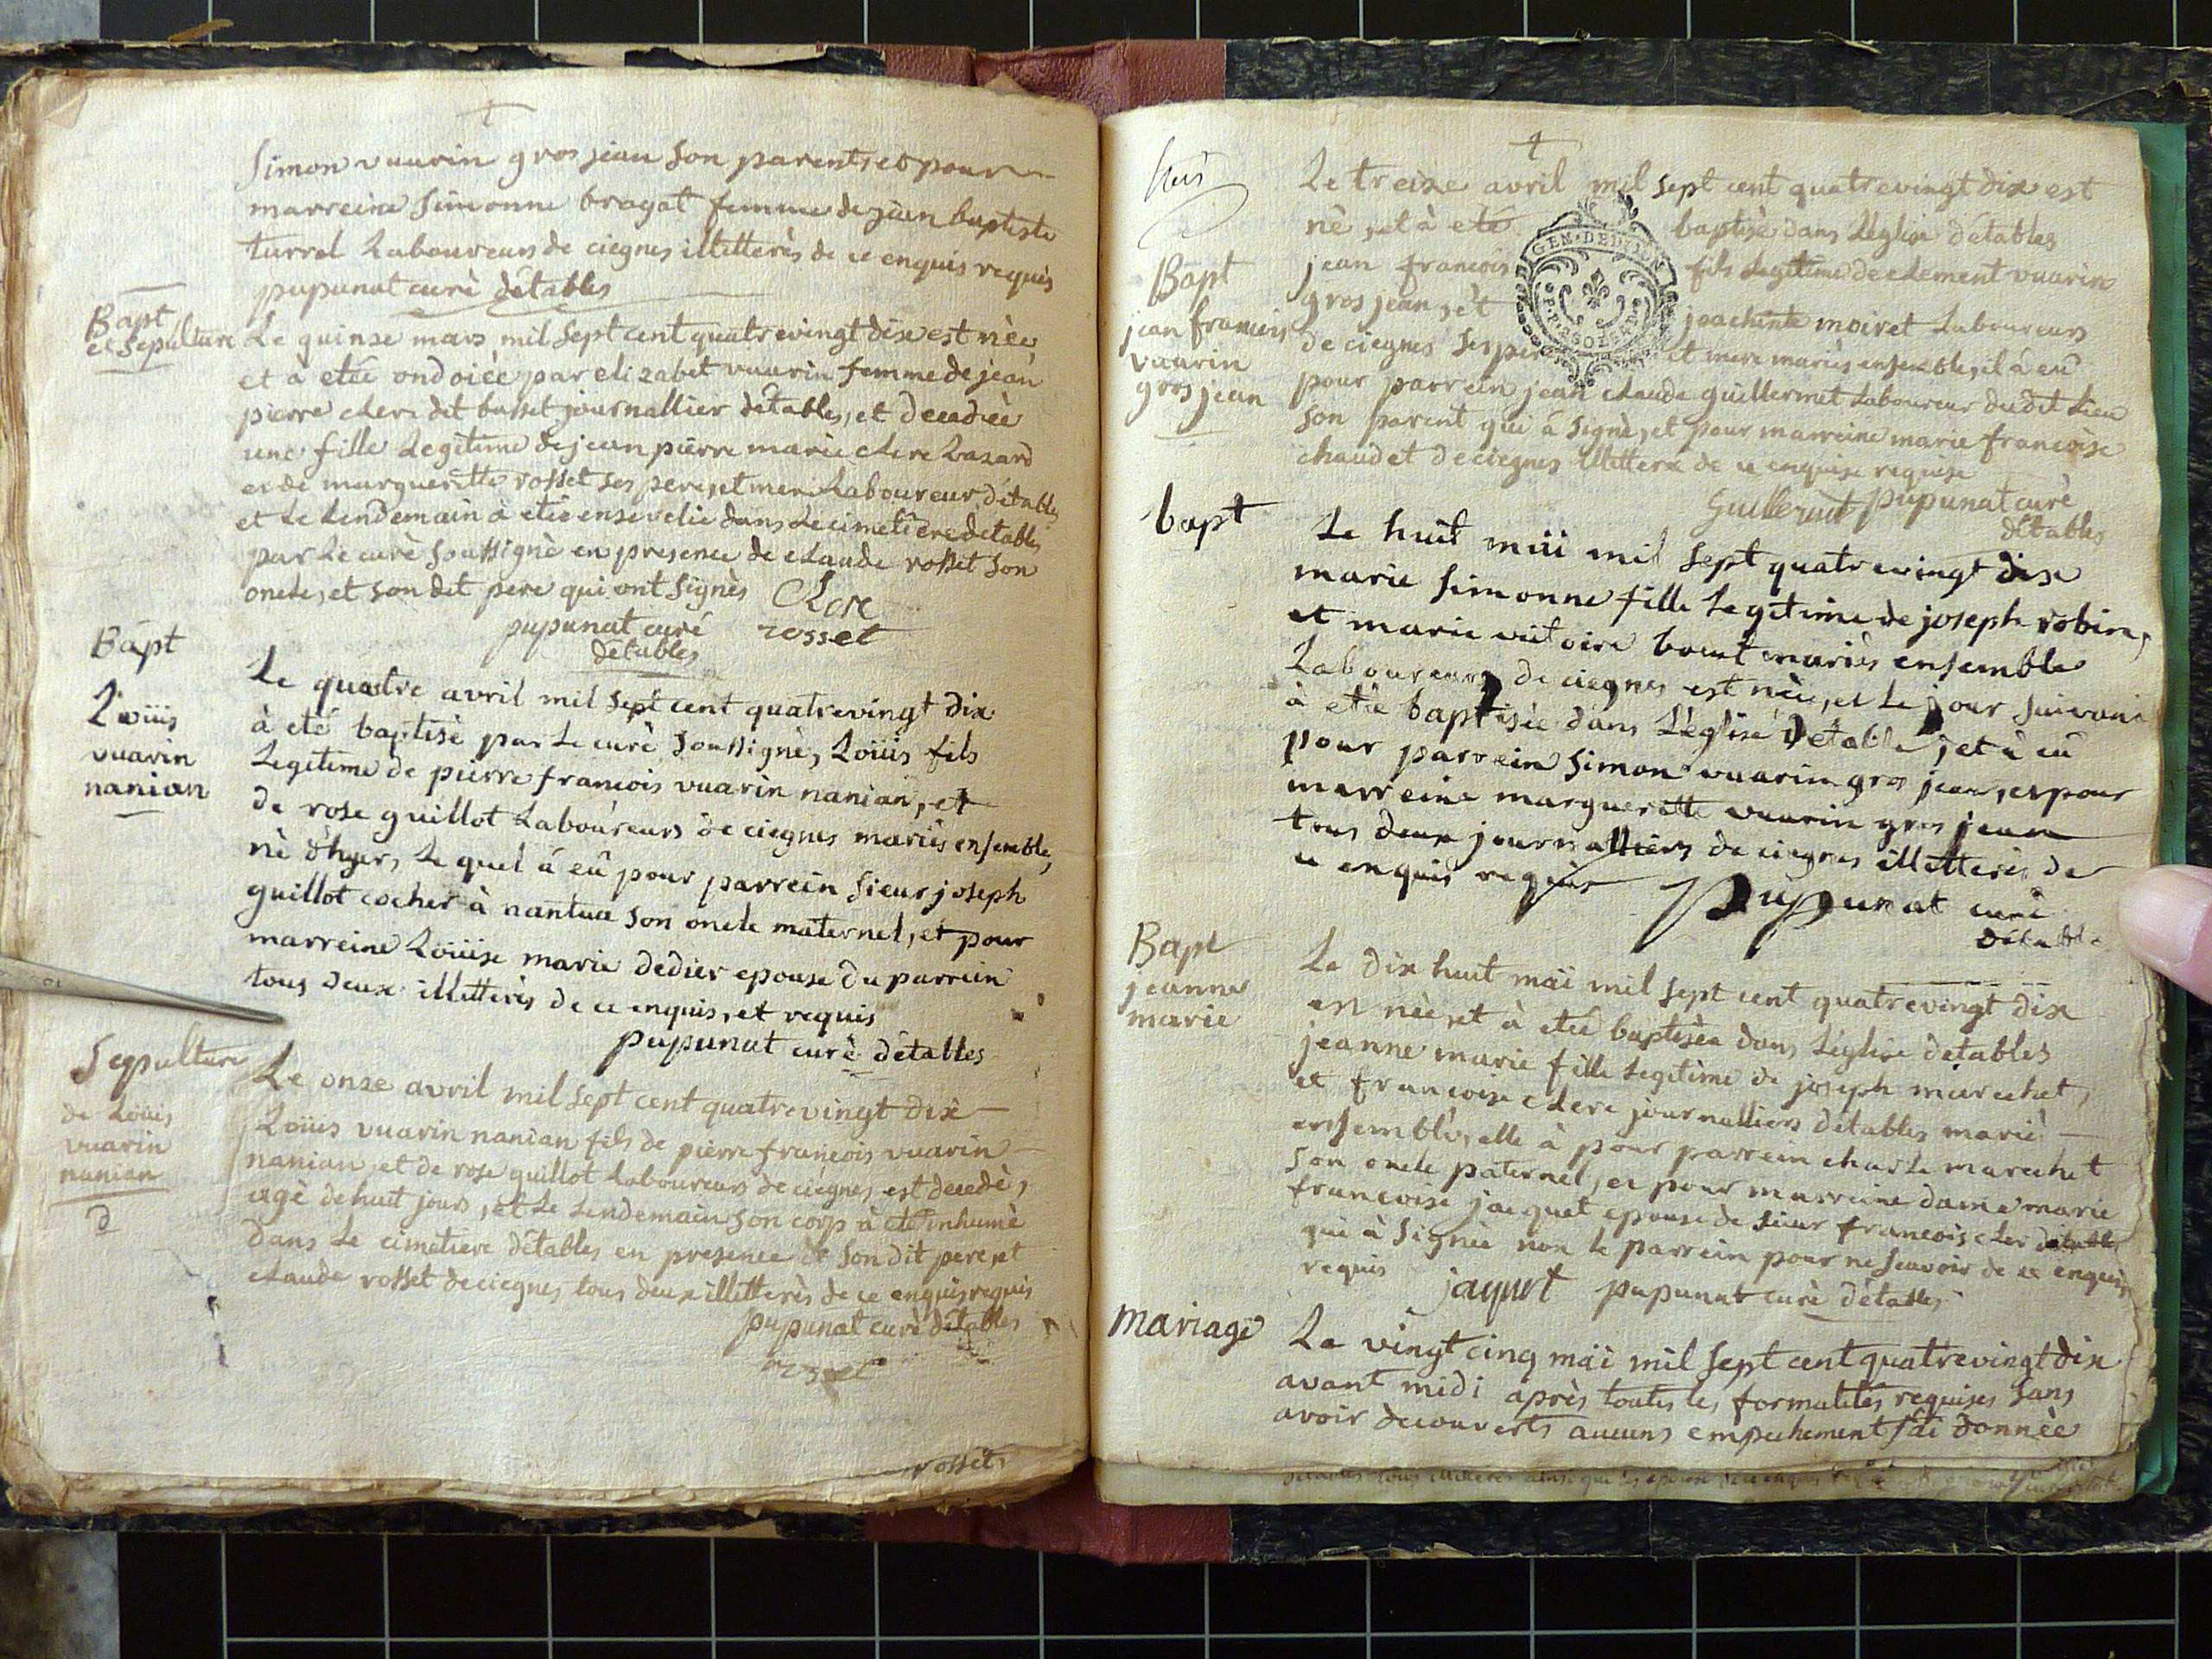 Simon vuarin gros jean son parent, et pour
marreine Simonne bragat femme de jean baptiste
turrel Laboureurs de ciegnes illetterès de ce enquis requis
pupunat curè détables
Bapt
et Sepulture
Le quinse mars mil Sept cent quatrevingt dix est nèe
et a etée ondoiée par elizabet vuarin femme de jean
pierre clerc dit basset journallier détables, et decedèe
une fille Legitime de jean pierre marie clerc Lazard
et de marguerette rosset ses pere, et mere Laboureur détables
et Le Lendemain à etée ensevelie dans Le cimetiere détables
par Le curè Soussignè en presence de claude rosset son
oncle, et son dit pere qui ont signès
Clerc
pupunat curé rosset
détables
Bapt
Loüis
vuarin
nanian
Le quatre avril mil sept cent quatrevingt dix
à eté baptisè par Le curè Soussignè, Loüis fils
Legitime de pierre francois vuarin nanian, et
de rose guillot Laboureurs de ciegnes mariès ensemble,
nè d'hyer, Le quel á eû pour parrein Sieur joseph
guillot cocher à nantua son oncle maternel, et pour
marreine Loüise marie dedier epouse du parrein
tous deux illetterès de ce enquis, et requis
pupunat curè détables
Sepulture
de Loüis
vuarin
nanian
Le onze avril mil sept cent quatrevingt dix
Loüis vuarin nanian fils de pierre francois vuarin
nanian, et de rose guillot Laboureurs de ciegnes, est decedè,
agè de huit jours, et Le Lendemain son corp à eté inhumè
dans Le cimetiere détables en presence de son dit pere, et
claude rosset de ciegnes tous deux illetterès de ce enquis requis
pupunat curè détables
rosset
rosset
Bapt
jean francois
vuarin
gros jean
Le treize avril mil sept cent quatrevingt dix est
nè, et à eté baptisè dans L'église détables
jean francois fils Legitime de clement vuarin
gros jean, èt joachinte moiret Laboureurs
de ciegnes ses per et mere mariès ensemble, il à eû
pour parrein jean claude guillermet Laboureur dudit Lieu
son parent qui á signè, et pour marreine marie francoise
chaudet de ciegnes illettere de ce enquise requise
GEN. DE DIJON
Guillermet pupunat curè
détables
bapt
Le huit mäi mil sept quatrevingt dix
marie Simonne fille Legitime de joseph robin,
et marie victoire mariès ensemble
Laboureurs de ciegnes est nèe, et Le jour suivant
à etée baptisée dans L'église Détable, et à eû
pour parrein Simon vuarin gros jean, et pour
marreine marguerette vuarin gros jean
tous deux journalliers de ciegnes illetterès de
ce enquis requis Pupunat curè
détable
Bapt
jeanne
marie
Le dix huit mäi mil sept cent quatrevingt dix
en nèe, et à etée baptisèe dans L'église détables
jeanne marie fille Legitime de joseph marechet,
et francoise clerc journalliers détables mariè
ensemble, elle à pour parrein charle marechet
son oncle paternel, et pour marreine dame marie
francoise jacquet epouse de sieur francois cler détables
qui à signèe non Le parrein pour ne scavoir de ce enquis
requis jaquet pupunat curè détables
mariage
Le vingt cinq mäi mil sept cent quatrevingt dix
avant midi après toutes les formalités requises sans
avoir decouverts aucuns empechement j'ai donnèe